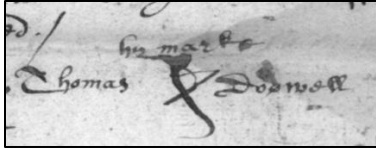 ed.
his marke
Thomas X Dodwell